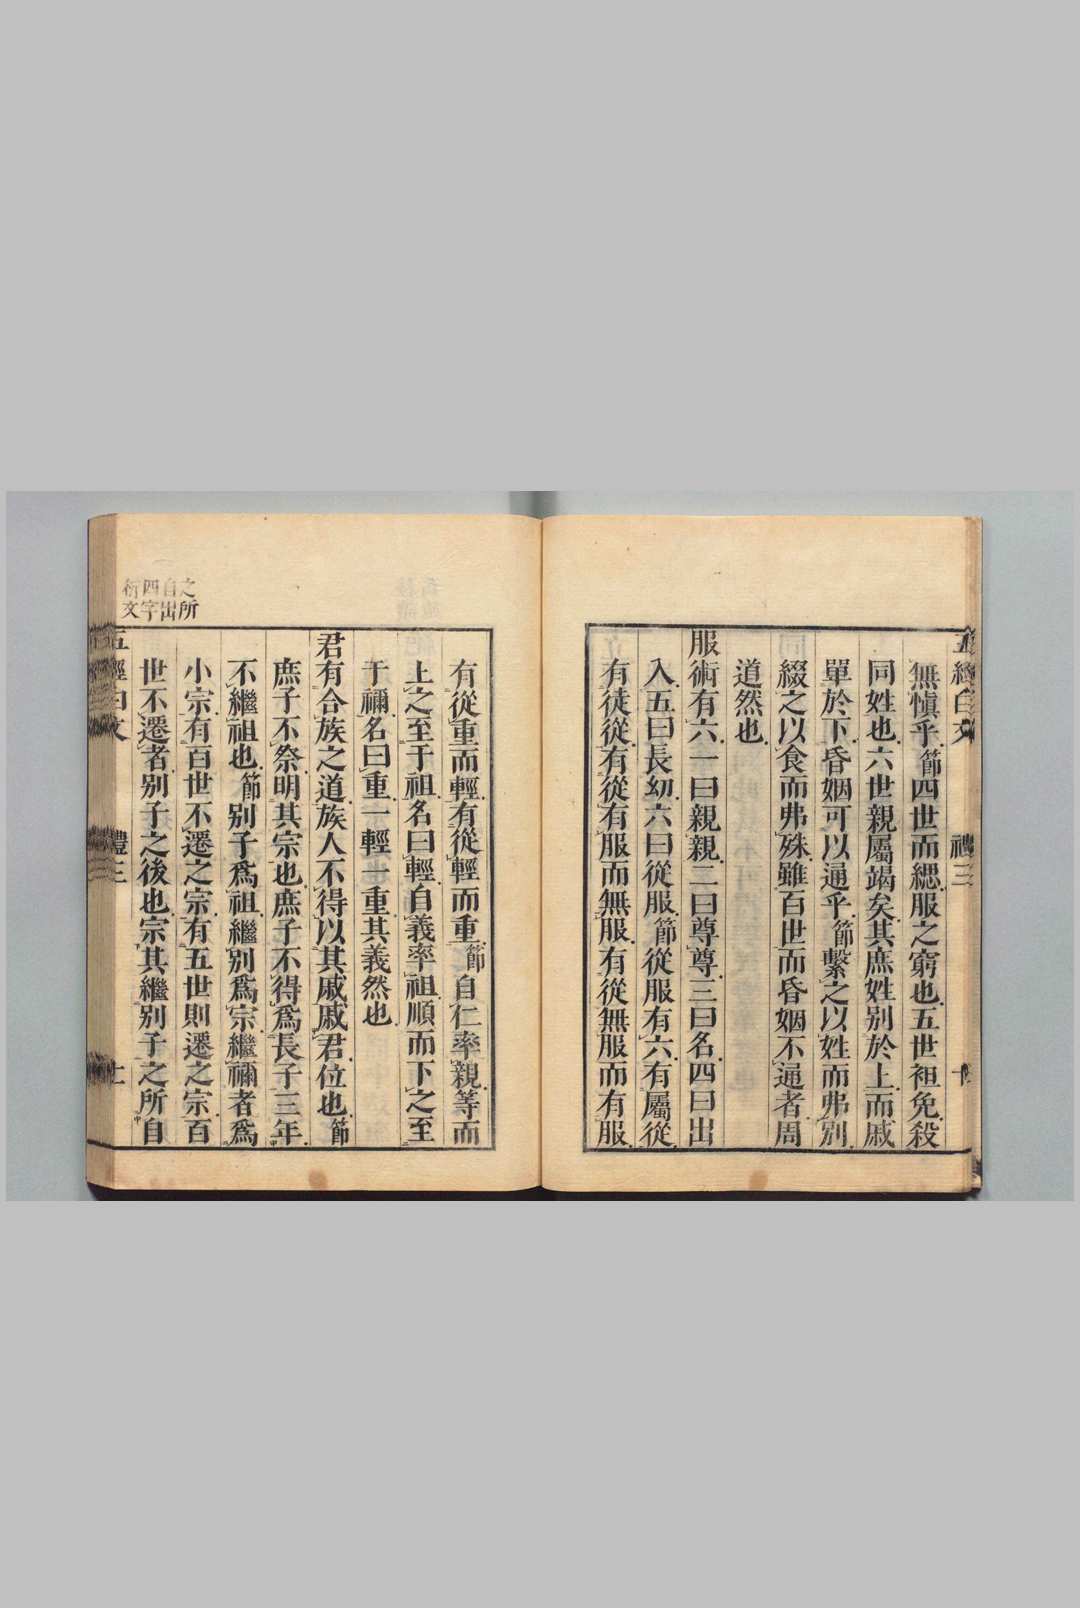 五經白文 禮三
無慎乎節四世而緦服之窮也五世袒免殺
同姓也六世親屬竭矣其庶姓别於上而戚
單於下昏姻可以通乎節繫之以姓而弗别
綴之以食而弗殊雖百世而昏姻不通者周
道然也
服術有六一曰親親二曰尊尊三曰名四曰出
入五曰長幼六曰從服節從服有六有屬從
有徒從有從有服而無服有從無服而有服
有從重而輕有從輕而重節自仁率親等而
上之至于祖名曰輕自義率祖順而下之至
于禰名曰重一輕一重其義然也
君有合族之道族人不得以其戚戚君位也節
庶子不祭明其宗也庶子不得爲長子三年
不繼祖也節别子爲祖繼别爲宗繼禰者爲
小宗有百世不遷之宗有五世則遷之宗百
世不遷者别子之後也宗其繼别子之所自
之所
自出
四字
衍文
五經白文 禮三